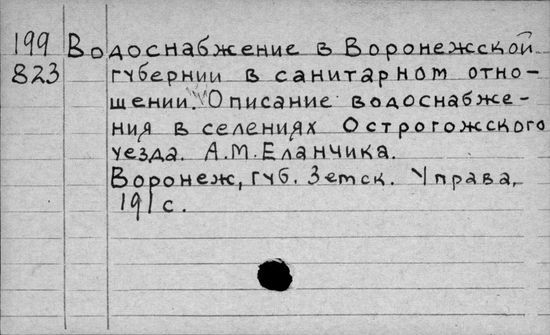 199 Водоснабжение в Воронежской
823 губернии в санитарном отно-
шении. Описание водоснабже-
ния в селениях Острогожского
уезда. А.М.Еланчика.
Воронеж, губ. Земск. Управа,
191 с.